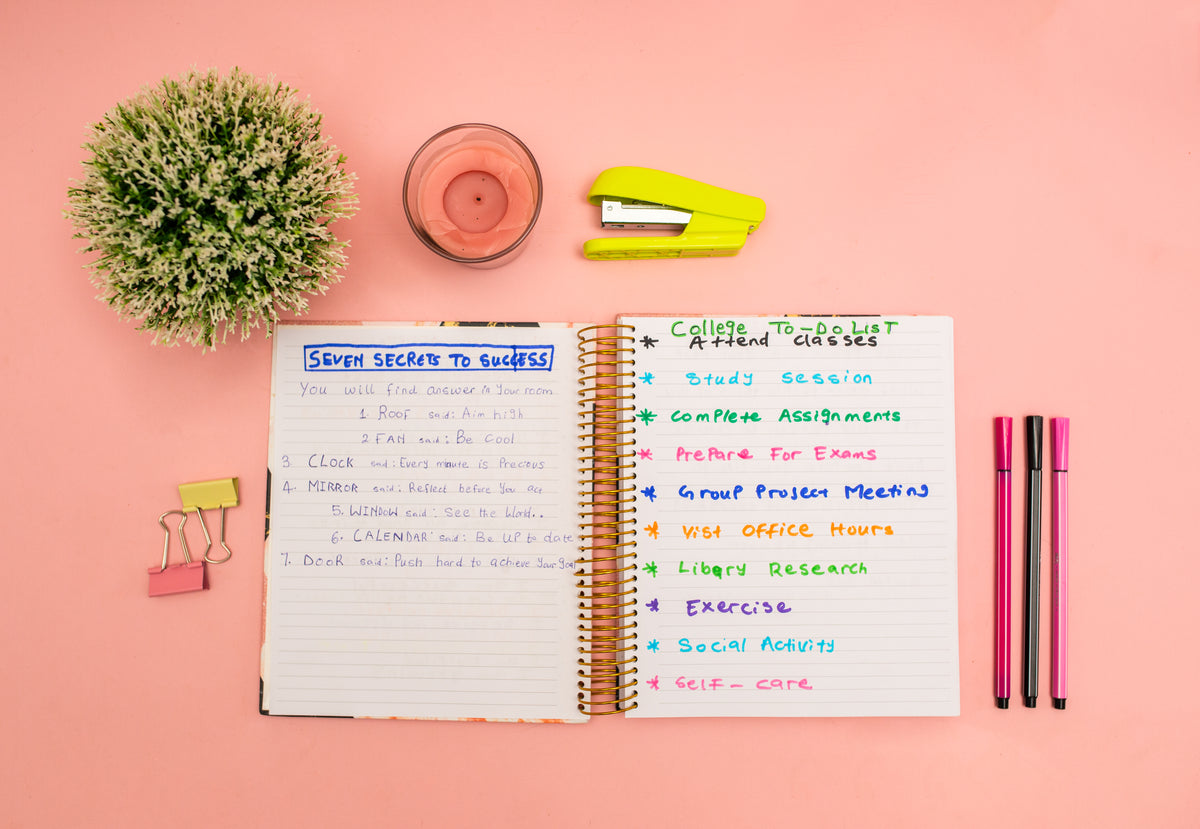 SEVEN SECRETS TO SUCCESS
You will find answer in Your room
1. ROOF said: Aim high
2 FAN said: Be Cool
3 CLOCK said: Every minute is Precious
4. MIRROR said: Reflect before You act
5. WINDOW said: See the World..
6. CALENDAR said: Be UP to date
7. DOOR said: Push hard to achieve Your Goal
College To-Do List
* Attend classes
* Study session
* Complete Assignments
* Prepare For Exams
* Group Project Meeting
* Vist Office Hours
* Library Research
* Exercise
* Social Activity
* Self-care